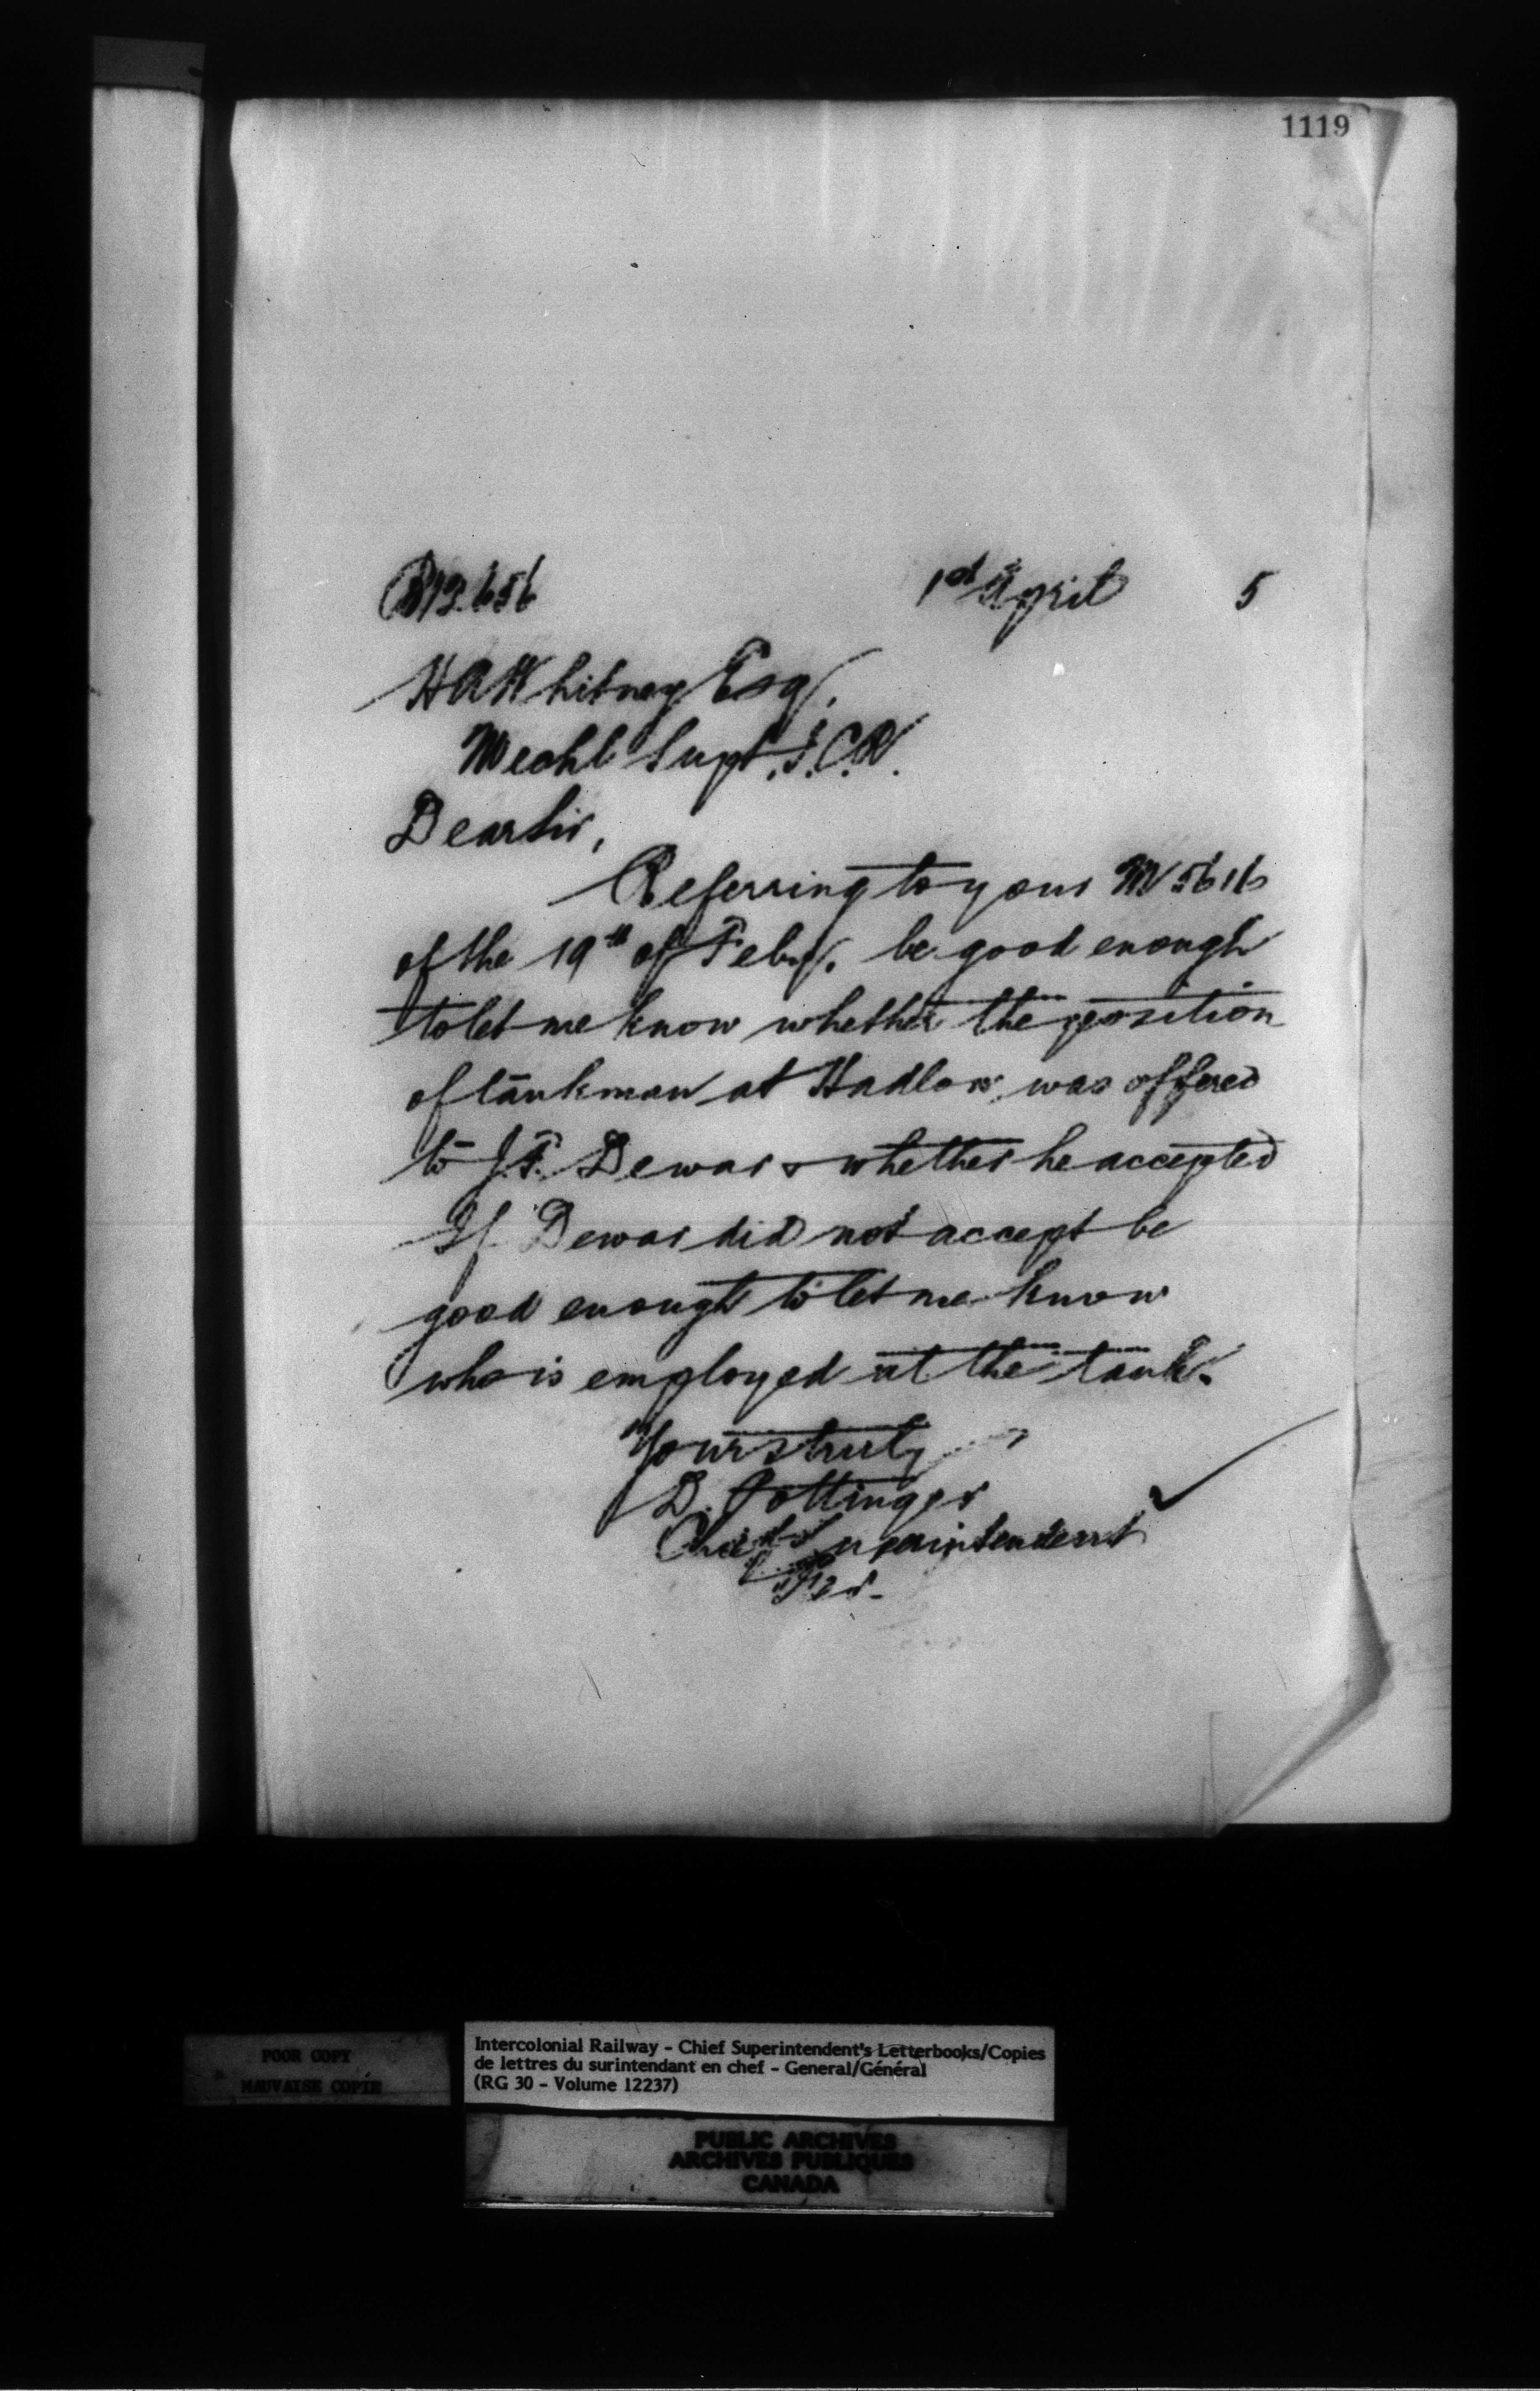 1119
B12656 1st April 5
H A Whitney Esq,
Mechl Supt. I.C.R.
Dear Sir,
Referring to your M 5616
of the 19th of Feby. be good enough
to let me know whether the position
of tankman at Hadlow was offered
to J.F. Dewar & whether he accepted
If Dewar did not accept be
good enough to let me know
who is employed at the tank.
Yours truly
D. Pottinger
Chief Superintendent
Per.
POOR COPY
MAUVAISE COPIE
Intercolonial Railway - Chief Superintendent's Letterbooks/Copies
de lettres du surintendant en chef - General/Général
(RG 30 - Volume 12237)
PUBLIC ARCHIVES
ARCHIVES PUBLIQUES
CANADA